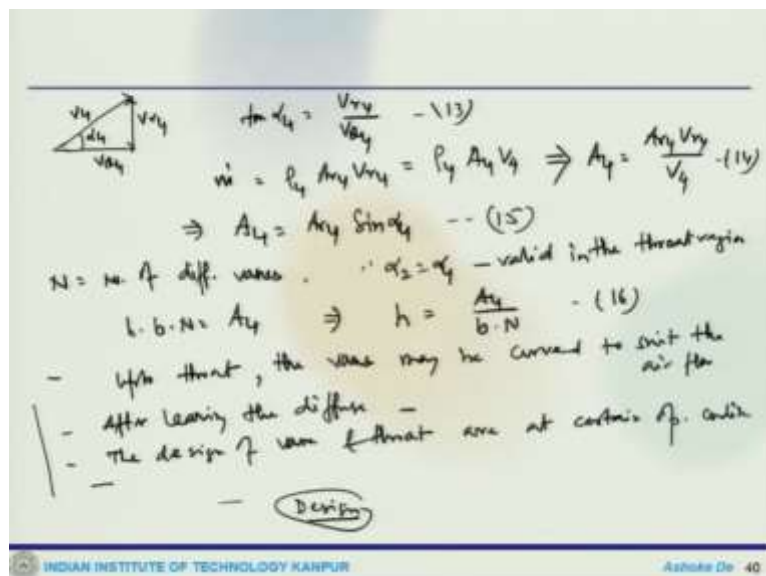 V4 α4 Vr4 Vθ4
tan α4 = Vr4/Vθ4 - (13)
ṁ = ρ4 Ar4 Vr4 = ρ4 A4 V4 ⇒ A4 = Ar4 Vr4/V4 - (14)
⇒ A4 = Ar4 Sin α4 -- (15)
N = no. of diff. vanes. ∵ α2 = α4 - valid in the throat region
h. b. N = A4 ⇒ h = A4/b.N - (16)
- Upto throat, the vane may be curved to suit the
air flow
- After leaving the diffuse -
- The design of vane & throat are at certain op. condin
-
- Design
INDIAN INSTITUTE OF TECHNOLOGY KANPUR
Ashoke De 40